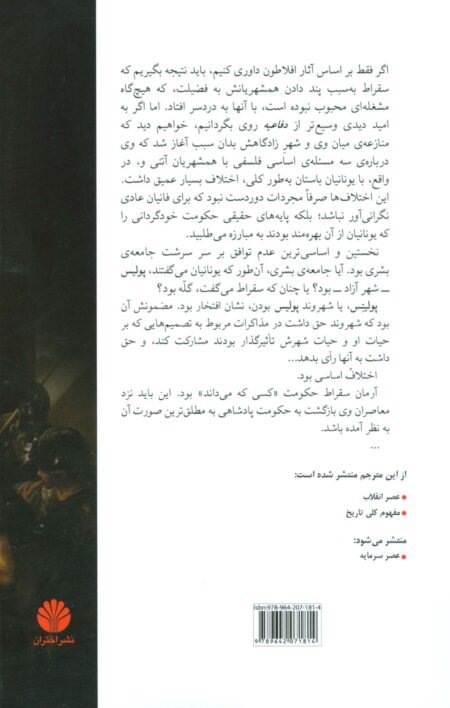 اگر فقط بر اساس آثار افلاطون داوری کنیم، باید نتیجه بگیریم که
سقراط به‌سبب پند دادن همشهریانش به فضیلت، که هیچ‌گاه
مشغله‌ای محبوب نبوده است، با آنها به دردسر افتاد. اما اگر به
امید دیدی وسیع‌تر از دفاعیه روی بگردانیم، خواهیم دید که
منازعه‌ی میان وی و شهرِ زادگاهش بدان سبب آغاز شد که وی
درباره‌ی سه مسئله‌ی اساسی فلسفی با همشهریان آتنی و، در
واقع، با یونانیان باستان به‌طور کلی، اختلاف بسیار عمیق داشت.
این اختلاف‌ها صرفاً مجردات دوردست نبود که برای فانیان عادی
نگرانی‌آور نباشد؛ بلکه پایه‌های حقیقی حکومت خودگردانی را
که یونانیان از آن بهره‌مند بودند به مبارزه می‌طلبید.
نخستین و اساسی‌ترین عدم توافق بر سر سرشت جامعه‌ی
بشری بود. آیا جامعه‌ی بشری، آن‌طور که یونانیان می‌گفتند، پولیس
ــ شهر آزاد ــ بود؟ یا چنان که سقراط می‌گفت، گلّه بود؟
پولیتِس، یا شهروند پولیس بودن، نشان افتخار بود. مضمونش آن
بود که شهروند حق داشت در مذاکرات مربوط به تصمیم‌هایی که بر
حیات او و حیات شهرش تأثیرگذار بودند مشارکت کند، و حق
داشت به آنها رأی بدهد...
اختلاف اساسی بود.
آرمان سقراط حکومت «کسی که می‌داند» بود. این باید نزد
معاصران وی بازگشت به حکومت پادشاهی به مطلق‌ترین صورت آن
به نظر آمده باشد.
...
از این مترجم منتشر شده است:
عصر انقلاب
مفهوم کلی تاریخ
منتشر می‌شود:
عصر سرمایه
نشر اختران
Isbn: 978-964-207-181-4
9 789642 071814